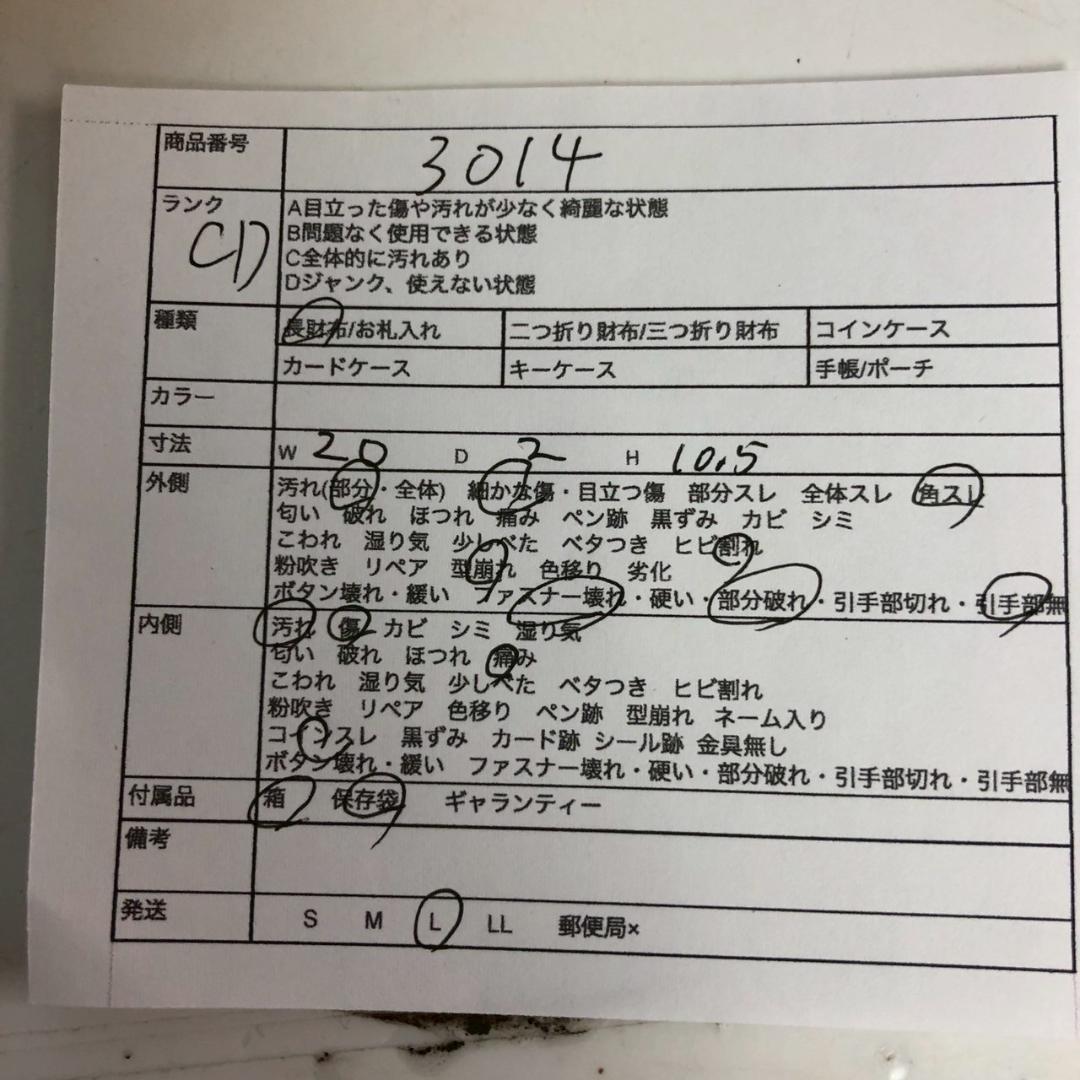 商品番号 3014
ランク CD
A目立った傷や汚れが少なく綺麗な状態
B問題なく使用できる状態
C全体的に汚れあり
Dジャンク、使えない状態
種類 長財布/お札入れ 二つ折り財布/三つ折り財布 コインケース
カードケース キーケース 手帳/ポーチ
カラー
寸法 W 20 D 2 H 10.5
外側 汚れ(部分・全体) 細かな傷・目立つ傷 部分スレ 全体スレ 角スレ
匂い 破れ ほつれ 痛み ペン跡 黒ずみ カビ シミ
こわれ 湿り気 少しべた ベタつき ヒビ割れ
粉吹き リペア 型崩れ 色移り 劣化
ボタン壊れ・緩い ファスナー壊れ・硬い・部分破れ・引手部切れ・引手部無
内側 汚れ 傷 カビ シミ 湿り気
匂い 破れ ほつれ 痛み
こわれ 湿り気 少しべた ベタつき ヒビ割れ
粉吹き リペア 色移り ペン跡 型崩れ ネーム入り
コインスレ 黒ずみ カード跡 シール跡 金具無し
ボタン壊れ・緩い ファスナー壊れ・硬い・部分破れ・引手部切れ・引手部無
付属品 箱 保存袋 ギャランティー
備考
発送 S M L LL 郵便局×